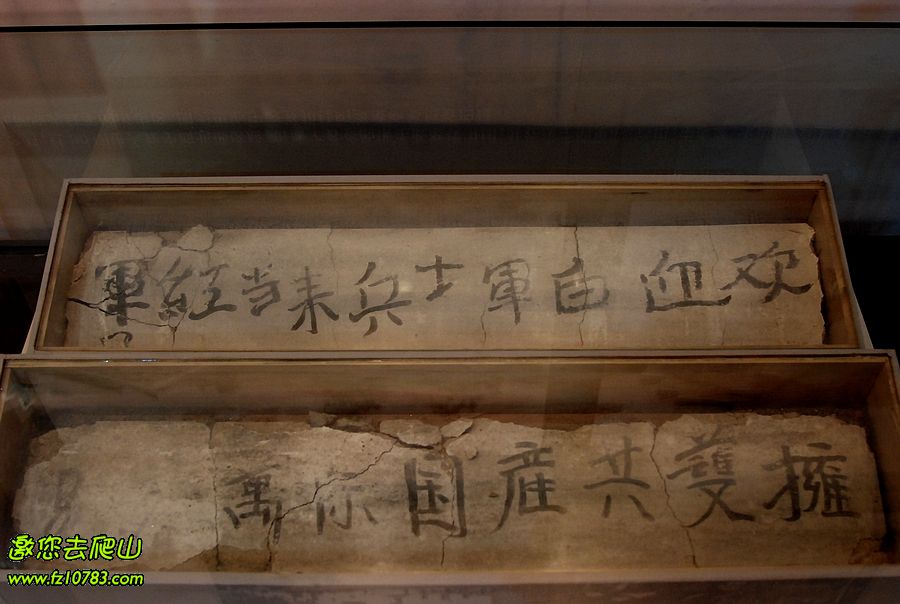 欢迎白軍士兵来当紅軍
擁護共産国际萬
邀您去爬山
www.fz10783.com